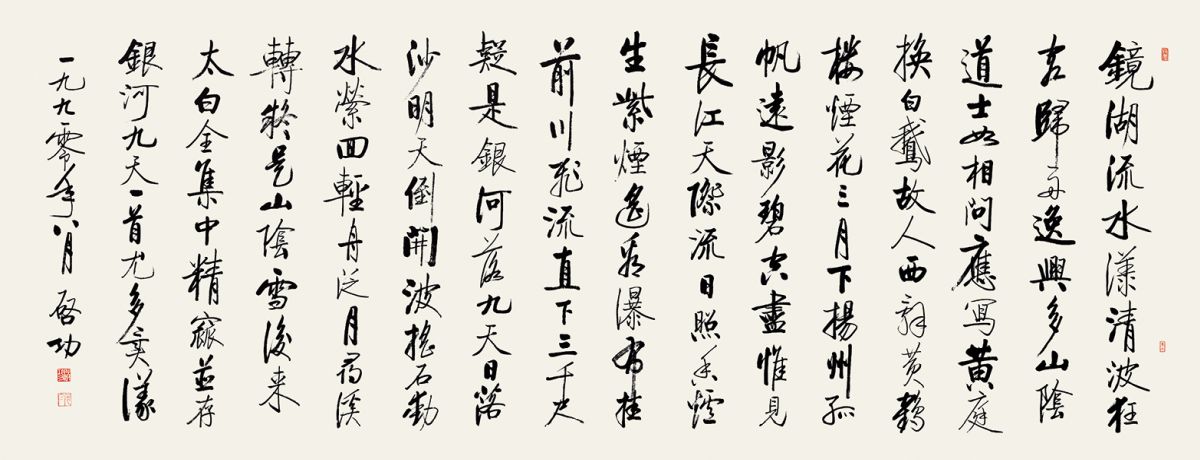 鏡湖流水漾清波狂
客歸舟逸興多山陰
道士如相問應寫黃庭
換白鵝故人西辭黃鶴
楼煙花三月下揚州孤
帆遠影碧空盡惟見
長江天際流日照香爐
生紫煙遙看瀑布挂
前川飛流直下三千尺
疑是銀河落九天日落
沙明天倒開波搖石動
水縈回輕舟泛月尋溪
轉疑是山陰雪後来
太白全集中精窳並存
銀河九天一首尤多
一九九零年八月 啓功